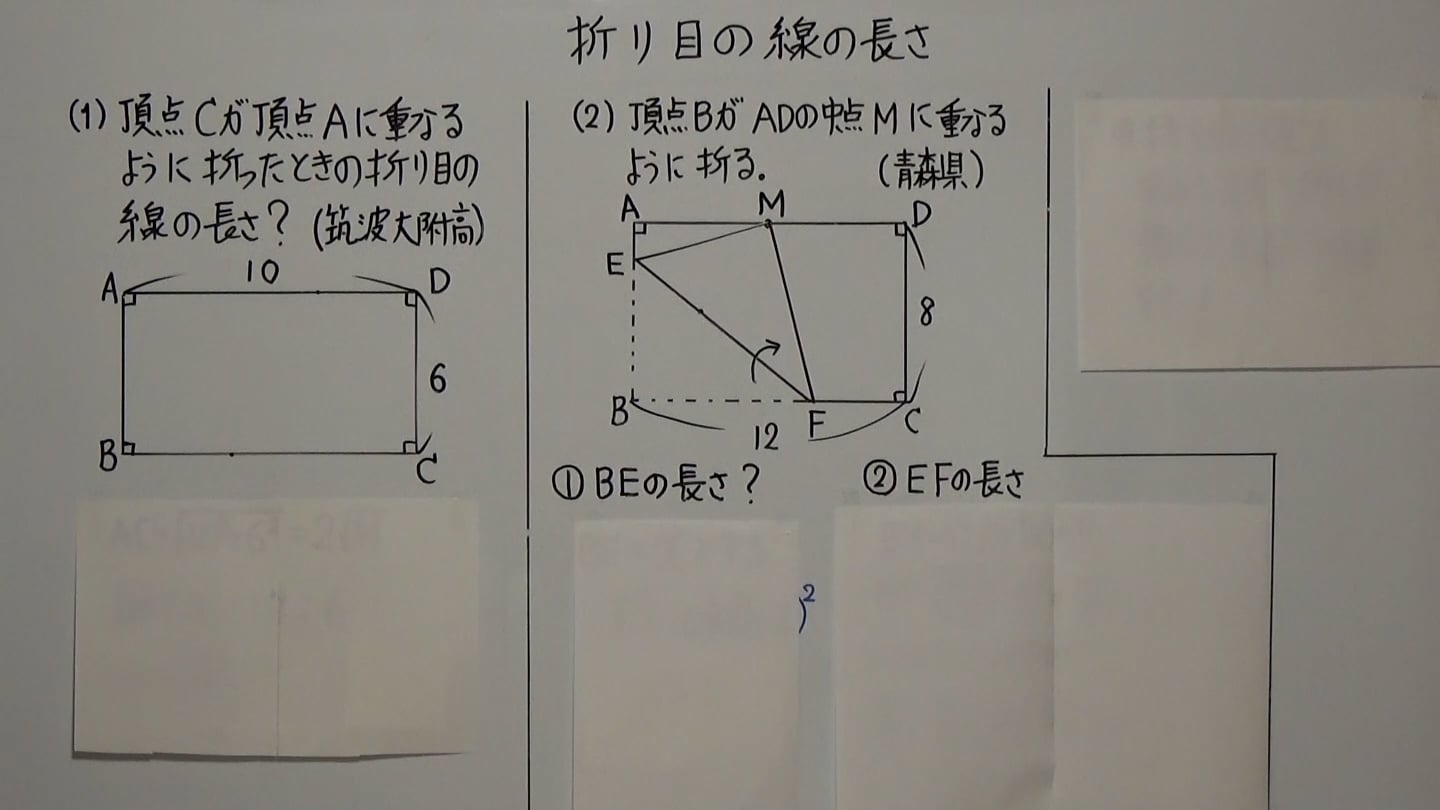 折り目の線の長さ
(1) 頂点Cが頂点Aに重なる
ように折ったときの折り目の
線の長さ? (筑波大附高)
A
10
D
6
B
C
(2) 頂点BがADの中点Mに重なる
ように折る.
(青森県)
A
M
D
E
8
B
F
C
12
① BEの長さ?
② EFの長さ
)²